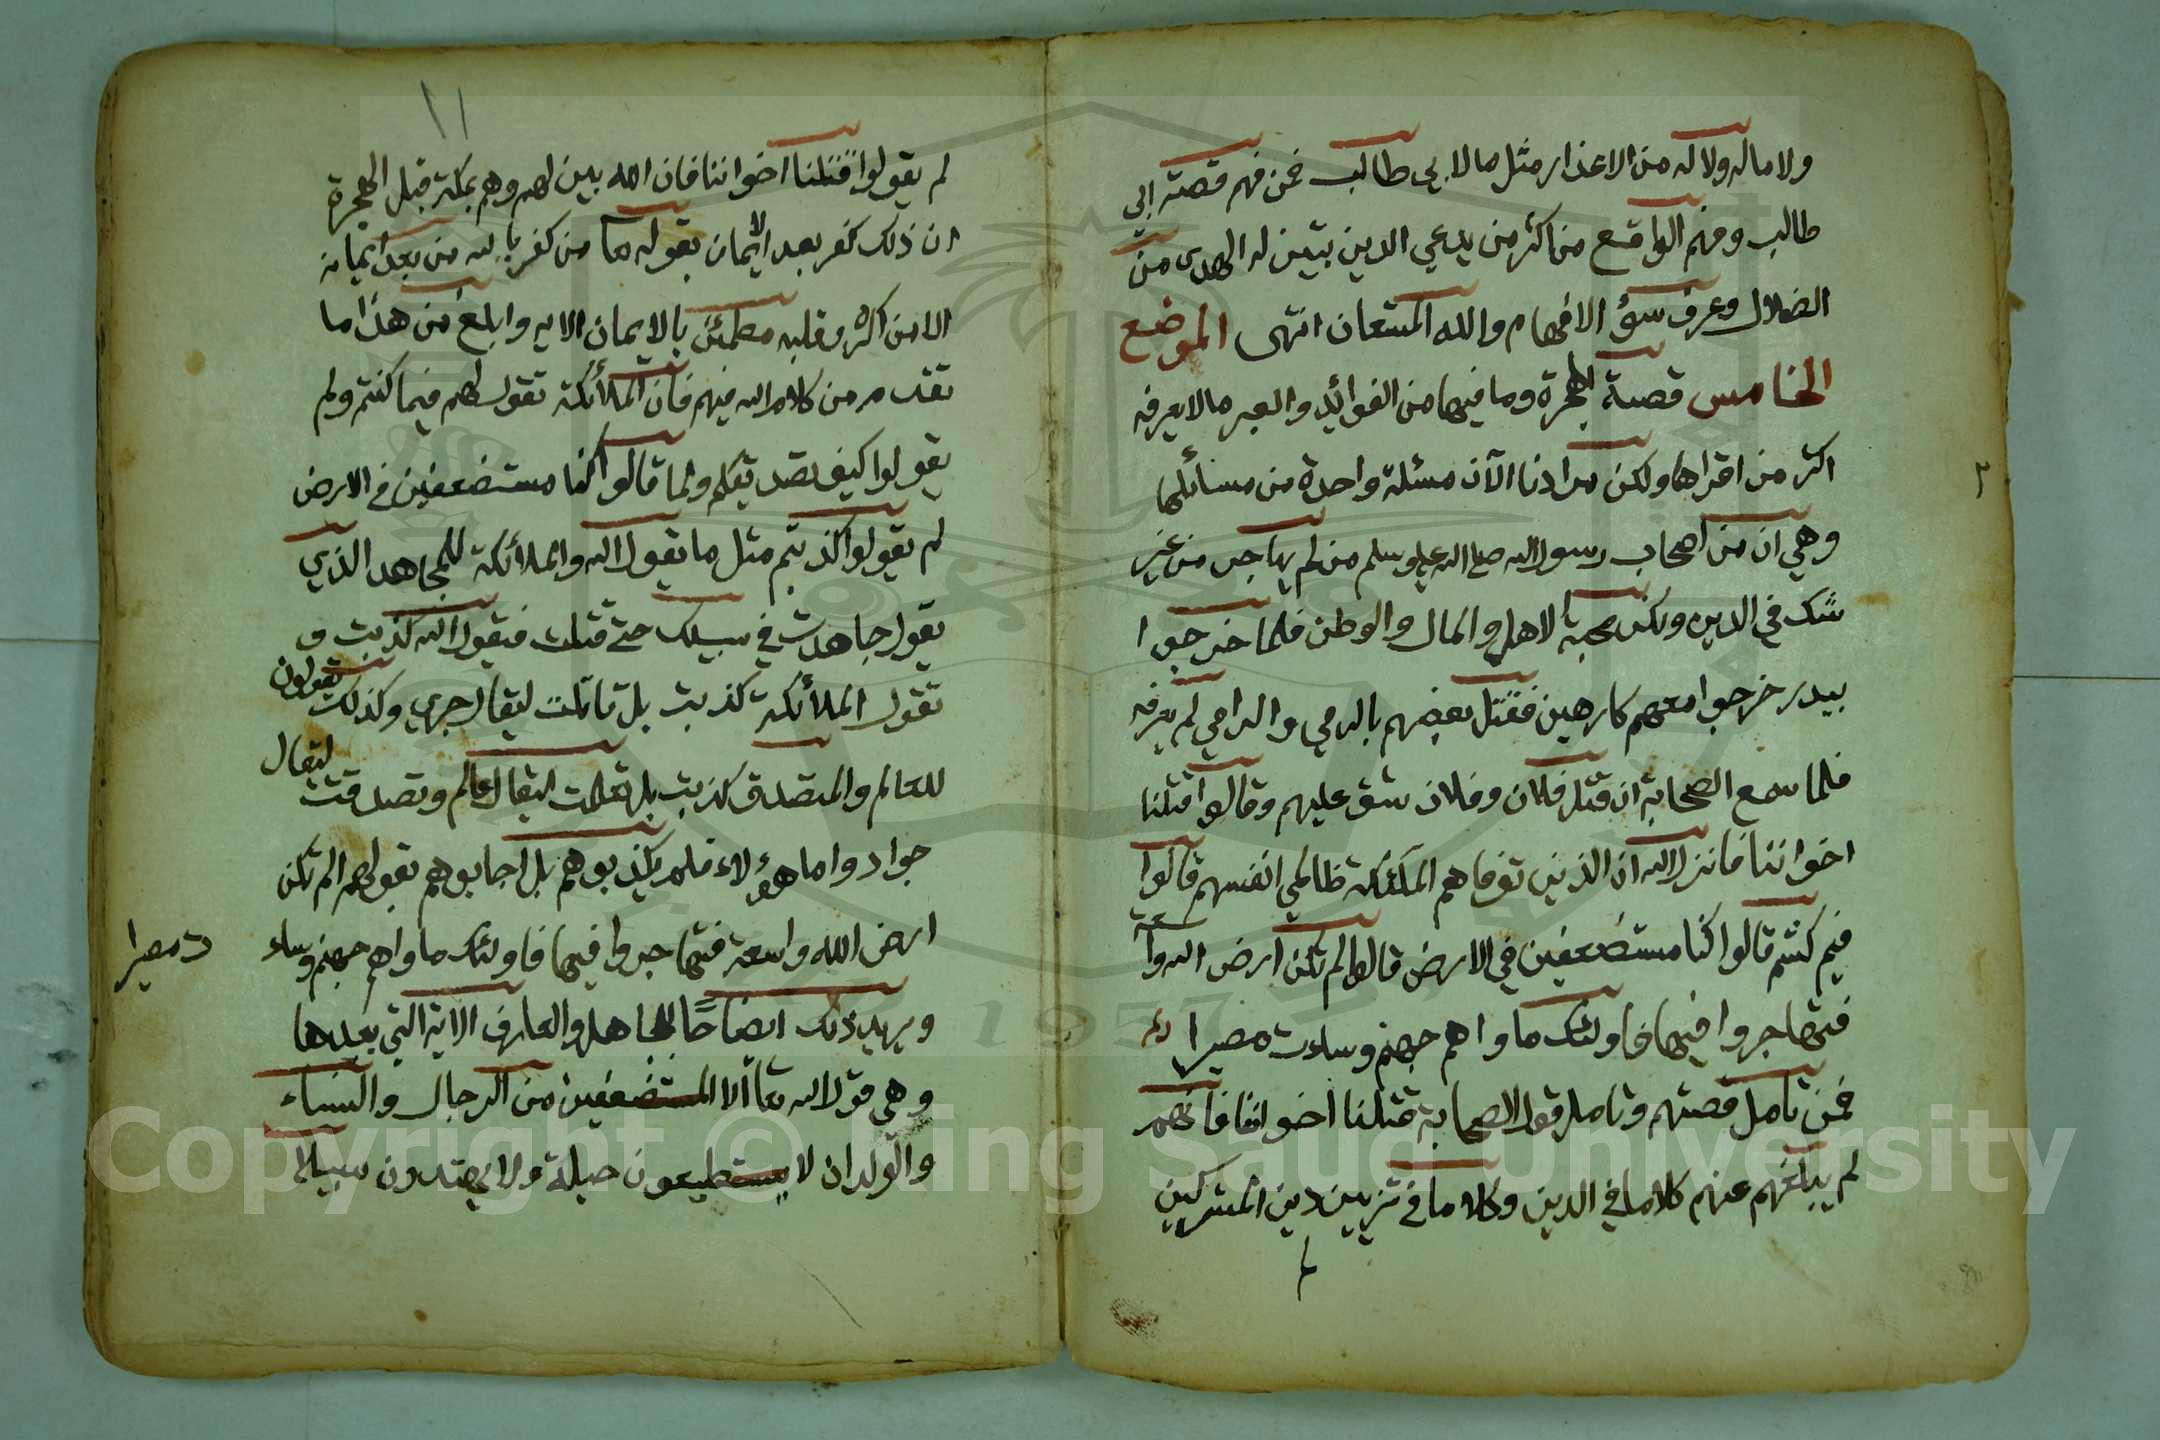 ولا ماله ولا له من الاعذار مثل ما لابي طالب فمن فهم قصة ابي
طالب وفهم الواقع من اكثر من يدعي الدين تبين له الهدى من
الضلال وعرف سؤ الافهام والله المستعان انتهى الموضع
الخامس قصة الهجرة وما فيها من الفوائد والعبر مالا يعرفه
اكثر من اقراها ولكن مرادنا الآن مسئلة واحدة من مسائلها
وهي ان من اصحاب رسول الله صلى الله عليه وسلم من لم يهاجر من غير
شك في الدين ولكن محبة الاهل والمال والوطن فلما خرجوا
ببدر خرجوا معهم كارهين فقتل بعضهم بالرمي والرامي لم يعرفه
فلما سمع الصحابة ان قتل فلان وفلان شق عليهم وقالوا قتلنا
اخواننا فانزل الله ان الذين توفاهم الملئكة ظالمي انفسهم قالوا
فيم كنتم قالوا كنا مستضعفين في الارض قالوا الم تكن ارض الله واسعة
فتهاجروا فيها فاولئك ماواهم جهنم وساءت مصيرا
فمن تامل قصتهم وتامل قول الصحابة قتلنا اخواننا فانهم
لم يبلغهم عنهم كلاما في الدين وكلاما في تزيين دين المشركين
٢
١١
لم يقولوا قتلنا اخواننا فان الله بين لهم وهم بمكة قبل الهجرة
ان ذلك كفر بعد الايمان بقوله تعا من كفر بالله من بعد ايمانه
الا من اكره وقلبه مطمئن بالايمان الايه وابلغ من هذا ما
تقدم من كلام الله فيهم فان الملأئكة تقول لهم فيما كنتم ولم
يقولوا كيف تصديقكم ولما قالوا كنا مستضعفين في الارض
لم يقولوا كذبتم مثل ما يقول الله والملائكة للمجاهد الذي
يقول جاهدت في سبيلك حتى قتلت فيقول الله كذبت و
تقول الملأئكة كذبت بل قاتلت ليقال جري وكذلك يقولون
للعالم والمتصدق كذبت بل تعلمت ليقال عالم وتصدقت ليقال
جواد واما هؤلاء فلم يكذبوهم بل اجابوهم بقولهم الم تكن
ارض الله واسعة فتهاجروا فيها فاولئك ماواهم جهنم وساء
ت مصيرا
ويزيد ذلك ايضاحًا للجاهل والعارف الاية التي بعدها
وهي قول الله تعا الا المستضعفين من الرجال والنساء
والولدان لا يستطيعون حيلة ولا يهتدون سبيلا
Copyright © King Saud University
1957